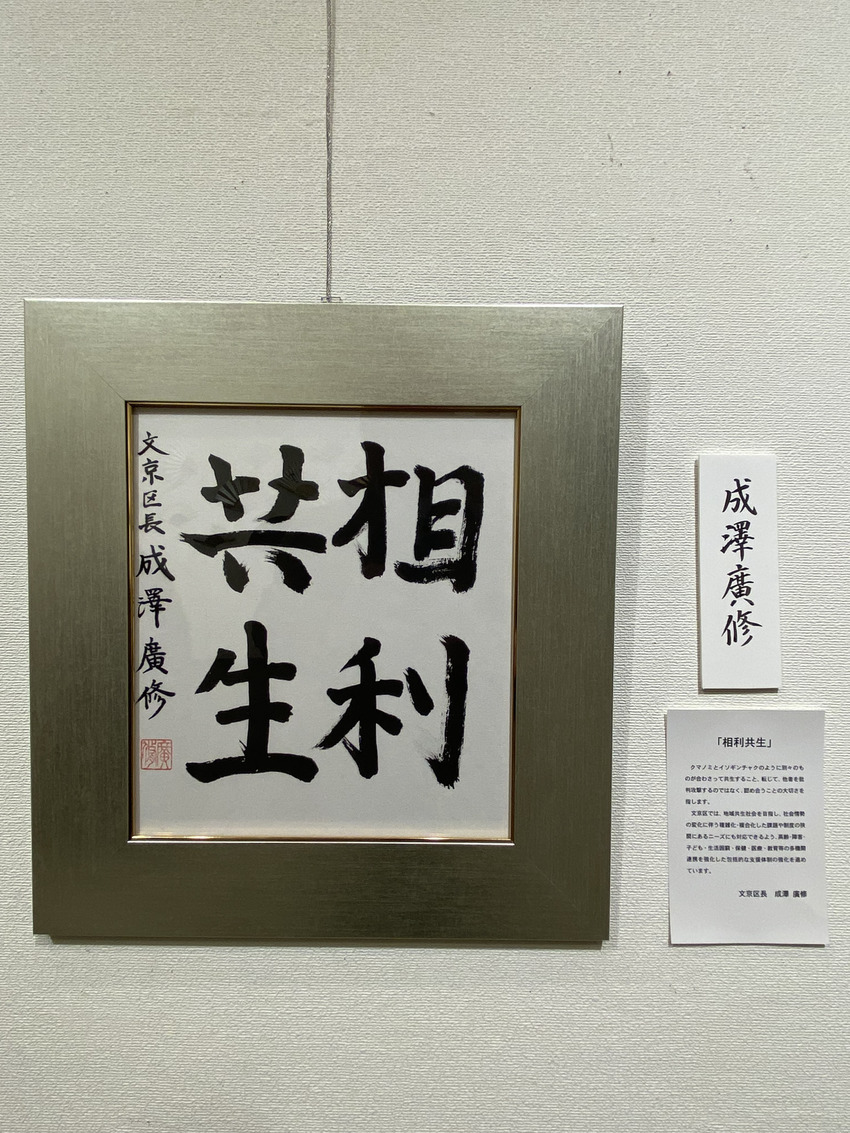 相利
共生
文京区長 成澤廣修
成澤廣修
「相利共生」
クマノミとイソギンチャクのように別々のも
のが合わさって共生すること、転じて、他者を批
判攻撃するのではなく、認め合うことの大切さを
指します。
文京区では、地域共生社会を目指し、社会情勢
の変化に伴う複雑化・複合化した課題や制度の狭
間にあるニーズにも対応できるよう、高齢・障害・
子ども・生活困窮・保健・医療・教育等の多機関
連携を強化した包括的な支援体制の強化を進め
ています。
文京区長 成澤 廣修